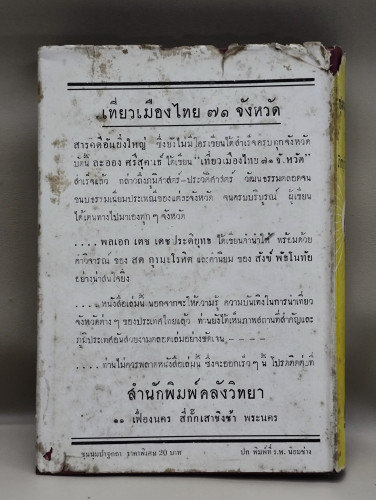 เที่ยวเมืองไทย ๗๑ จังหวัด
สารคดีอันยิ่งใหญ่ ซึ่งยังไม่มีใครเขียนได้สำเร็จครบทุกจังหวัด
บัดนี้ ละออง ศรีสุคนธ์ ได้เขียน "เที่ยวเมืองไทย ๗๑ จังหวัด"
สำเร็จแล้ว กล่าวถึงภูมิศาสตร์-ประวัติศาสตร์ วัฒนธรรมตลอดจน
ขนบธรรมเนียมประเพณีของแต่ละจังหวัด จนครบบริบูรณ์ ผู้เขียน
ได้เดินทางไปมาเองทุก ๆ จังหวัด
.... พลเอก เดช เดชประดิยุทธ ได้เขียนคำนำให้ พร้อมด้วย
คำวิจารณ์ ของ สด กูรมะโรหิต และคำนิยม ของ สงข์ พัธโนทัย
อย่างน่าสนใจยิ่ง
....หนังสือเล่มนี้ นอกจากจะให้ความรู้ ความบันเทิงในการนำเที่ยว
จังหวัดต่าง ๆ ของประเทศไทยแล้ว ท่านยังได้เห็นภาพสถานที่สำคัญและ
ภูมิประเทศอันสวยงามตลอดเล่มอย่างชัดเจน - - - -
....ท่านไม่ควรพลาดหนังสือเล่มนี้ ซึ่งจะออกเร็ว ๆ นี้ โปรดติดต่อที่
สำนักพิมพ์คลังวิทยา
๑๑ เฟื่องนคร สี่กั๊กเสาชิงช้า พระนคร
ชุมนุมปาฐกถา ราคาพิเศษ 20 บาท
ปก พิมพ์ที่ ร.พ. นิยมช่าง